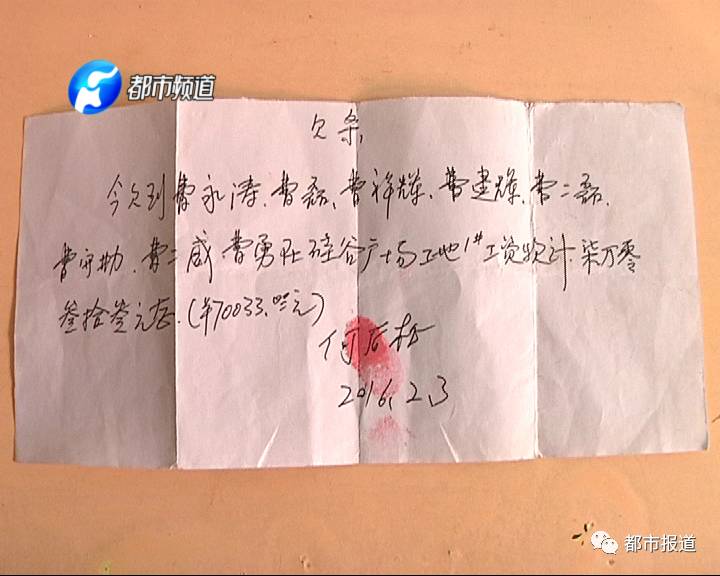 都市频道
欠条
今欠到曹永涛、曹磊、曹祥辉、曹建辉、曹二磊、
曹守勋、曹二威、曹勇在硅谷广场工地1#工资款计柒万零
叁拾叁元整.(¥70033.00元)
何
2016.2.3
都市报道